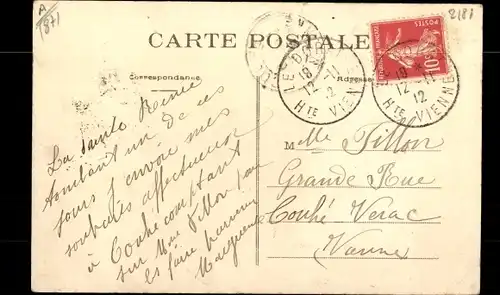 A
871
2181
CARTE POSTALE
Correspondance
Adresse
POSTES
10c
LE DORAT
18
12 - 11
12
Hte VIENNE
12 - 11
12
Hte VIENNE
La Sainte
tombant un de ces
jours j'envoie mes
souhaits affectueux
à Couhé comptant
sur Mme Pillon pour
les faire parvenir
Marguerite
Mlle Pillon
Grande Rue
Couhé Verac
Vienne